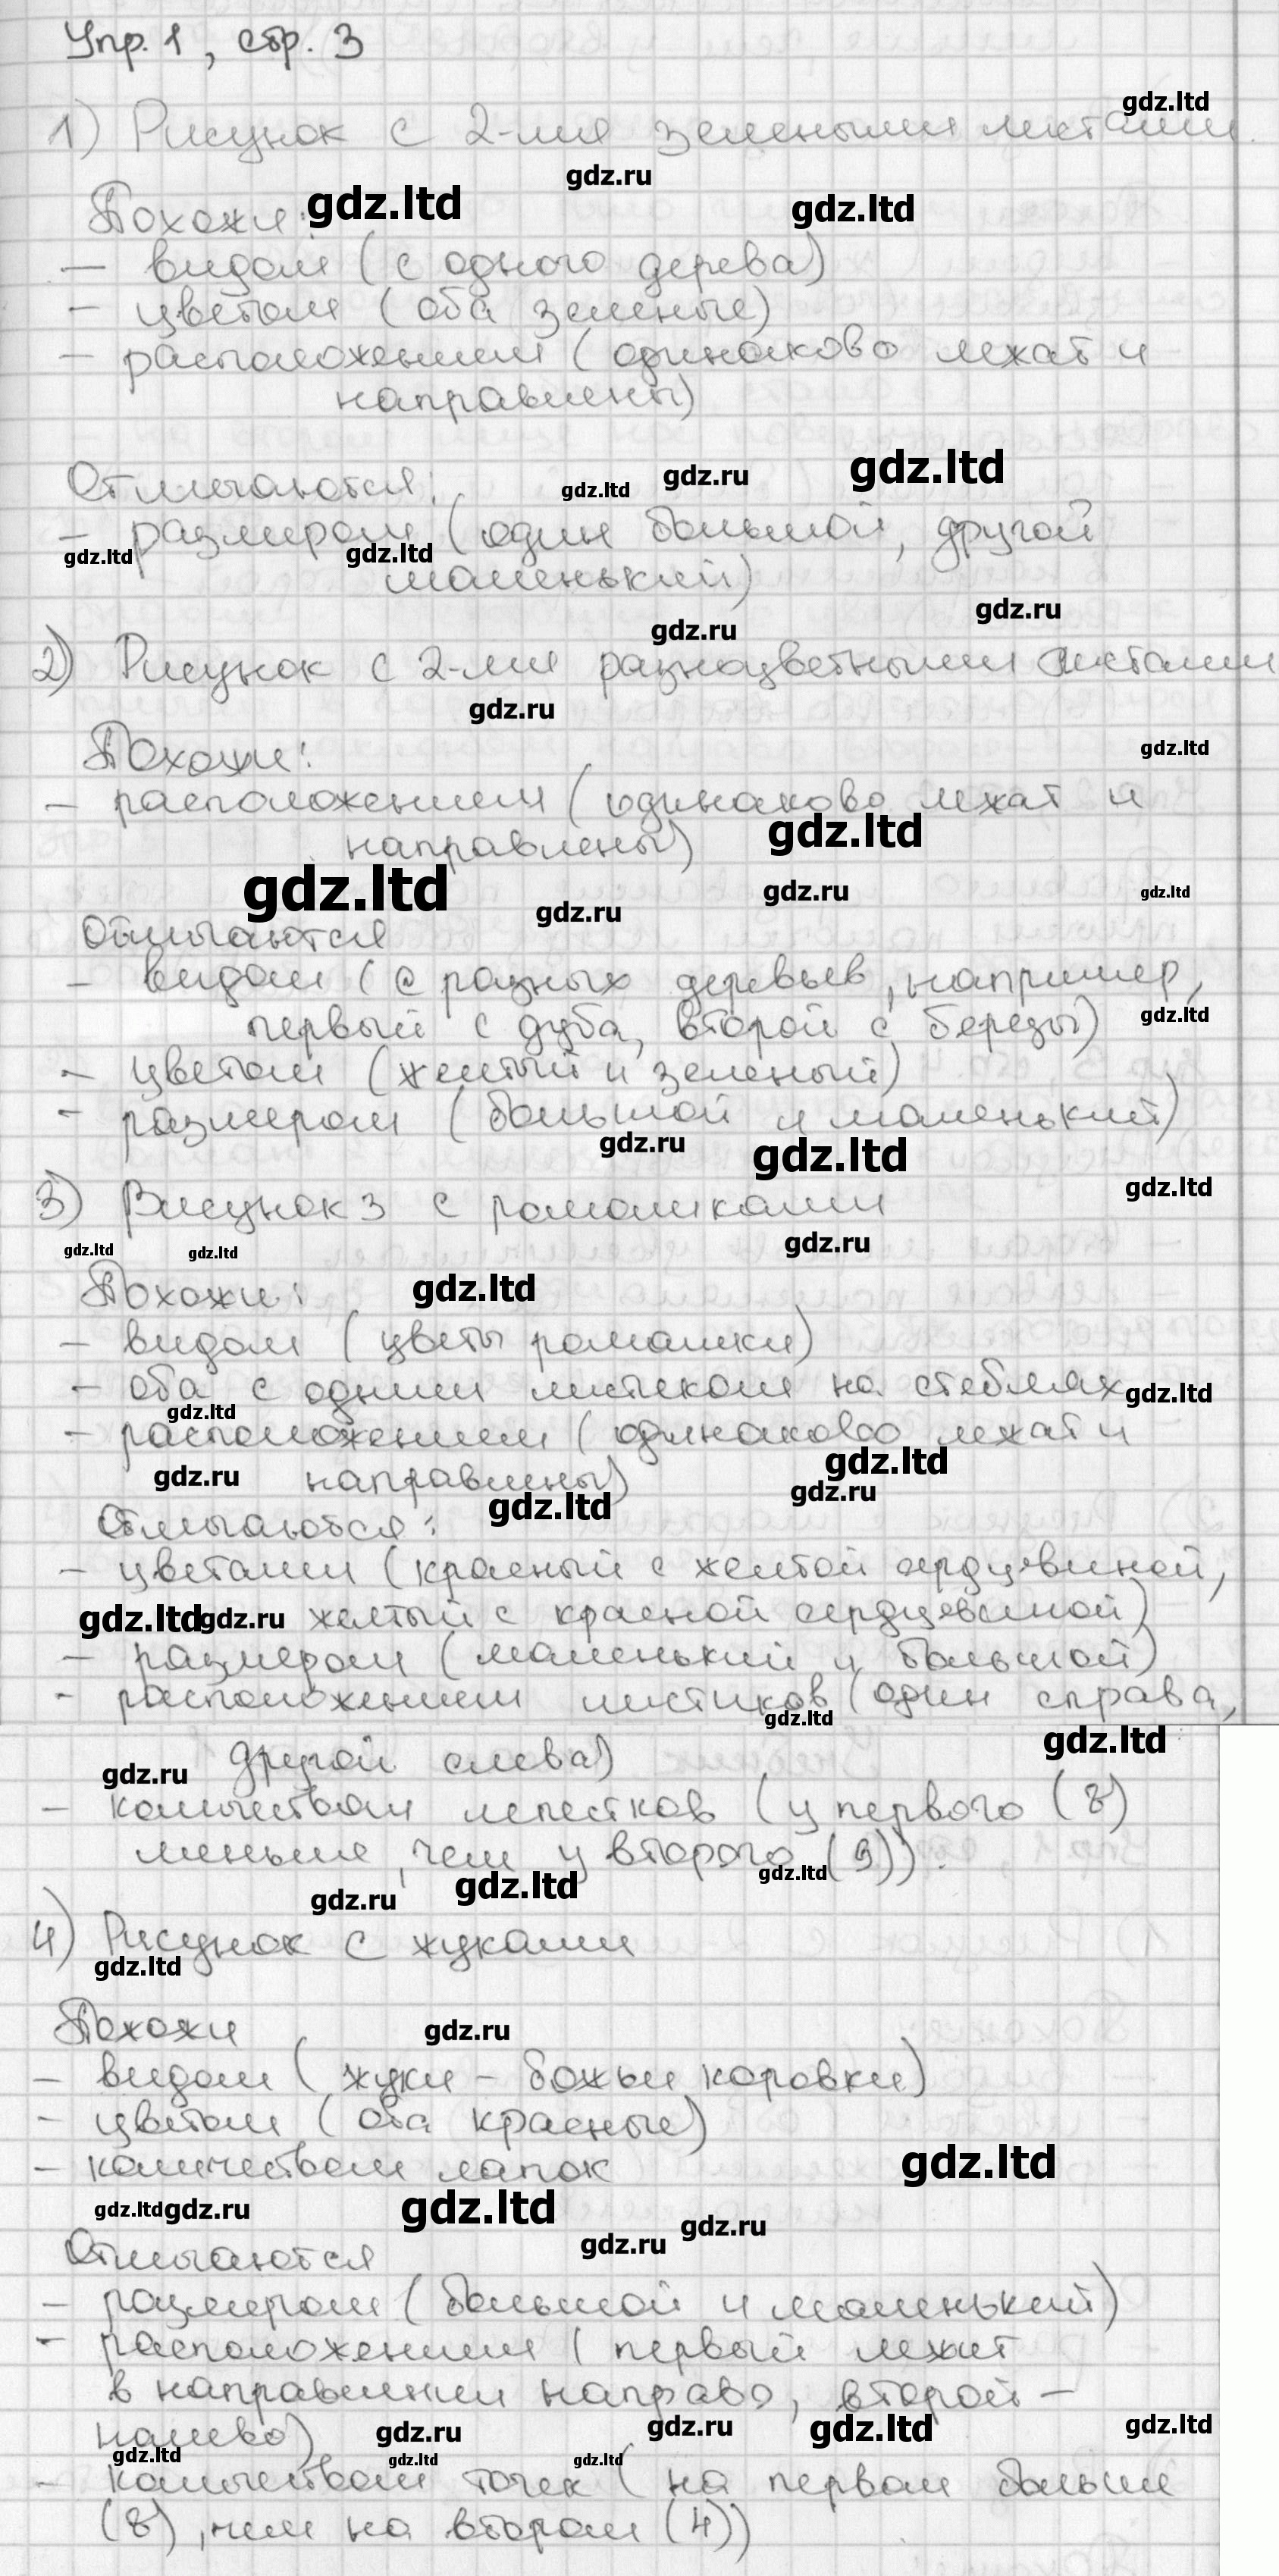 Упр. 1, стр. 3
gdz.ltd
1) Рисунок с 2-мя зелеными листами.
gdz.ru
Похожи:
gdz.ltd gdz.ltd
- видом (с одного дерева)
- цветом (оба зеленые)
- расположением (одинаково лежат и
направлены)
gdz.ltd
Отличаются:
gdz.ltd gdz.ru
- размером (один большой, другой
gdz.ltd gdz.ltd
маленький)
gdz.ru
gdz.ru
2) Рисунок с 2-мя разноцветными листами
gdz.ru
Похожи:
gdz.ltd
- расположением (одинаково лежат и
направлены)
gdz.ltd
gdz.ltd gdz.ru gdz.ru gdz.ltd
Отличаются
- видом (с разных деревьев, например,
первый с дуба, второй с березы)
gdz.ltd
- цветом (желтый и зеленый)
- размером (большой и маленький)
gdz.ru gdz.ltd
gdz.ltd
3) Рисунок 3 с ромашками
gdz.ltd gdz.ltd gdz.ru
Похожи:
gdz.ltd
- видом (цветы ромашки)
- оба с одним листиком на стеблях
gdz.ltd
gdz.ltd
- расположением (одинаково лежат и
gdz.ltd
gdz.ru направлены)
gdz.ru
gdz.ltd
Отличаются:
- цветами (красный с желтой сердцевиной,
gdz.ltd gdz.ru желтый с красной сердцевиной)
- размером (маленький и большой)
- расположением листиков (один справа,
gdz.ltd
gdz.ltd
другой слева)
gdz.ru
- количеством лепестков (у первого (8)
меньше, чем у второго (9)).
gdz.ltd
gdz.ru gdz.ltd
4) Рисунок с жуками
gdz.ltd
Похожи
gdz.ru
- видом (жуки - божьи коровки)
- цветом (оба красные)
- количеством лапок
gdz.ltd
gdz.ltd gdz.ru gdz.ltd
gdz.ru gdz.ru
Отличаются
- размером (большой и маленький)
- расположением (первый лежит
в направлении направо, второй -
налево)
gdz.ru gdz.ru gdz.ltd gdz.ltd
gdz.ltd gdz.ltd gdz.ltd
- количеством точек (на первом больше
(8), чем на втором (4))